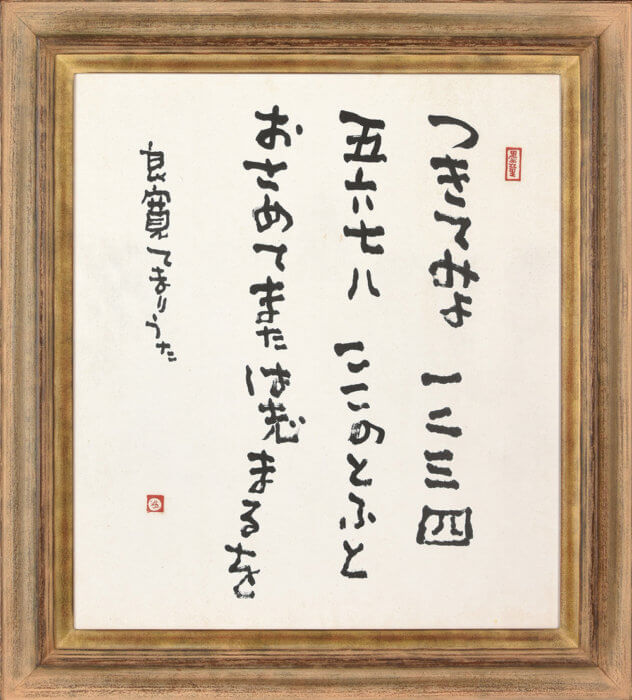 つきてみよ 一二三四
五六七八 ここのとふと
おさめてまたは志まるを
良寛てまりうた